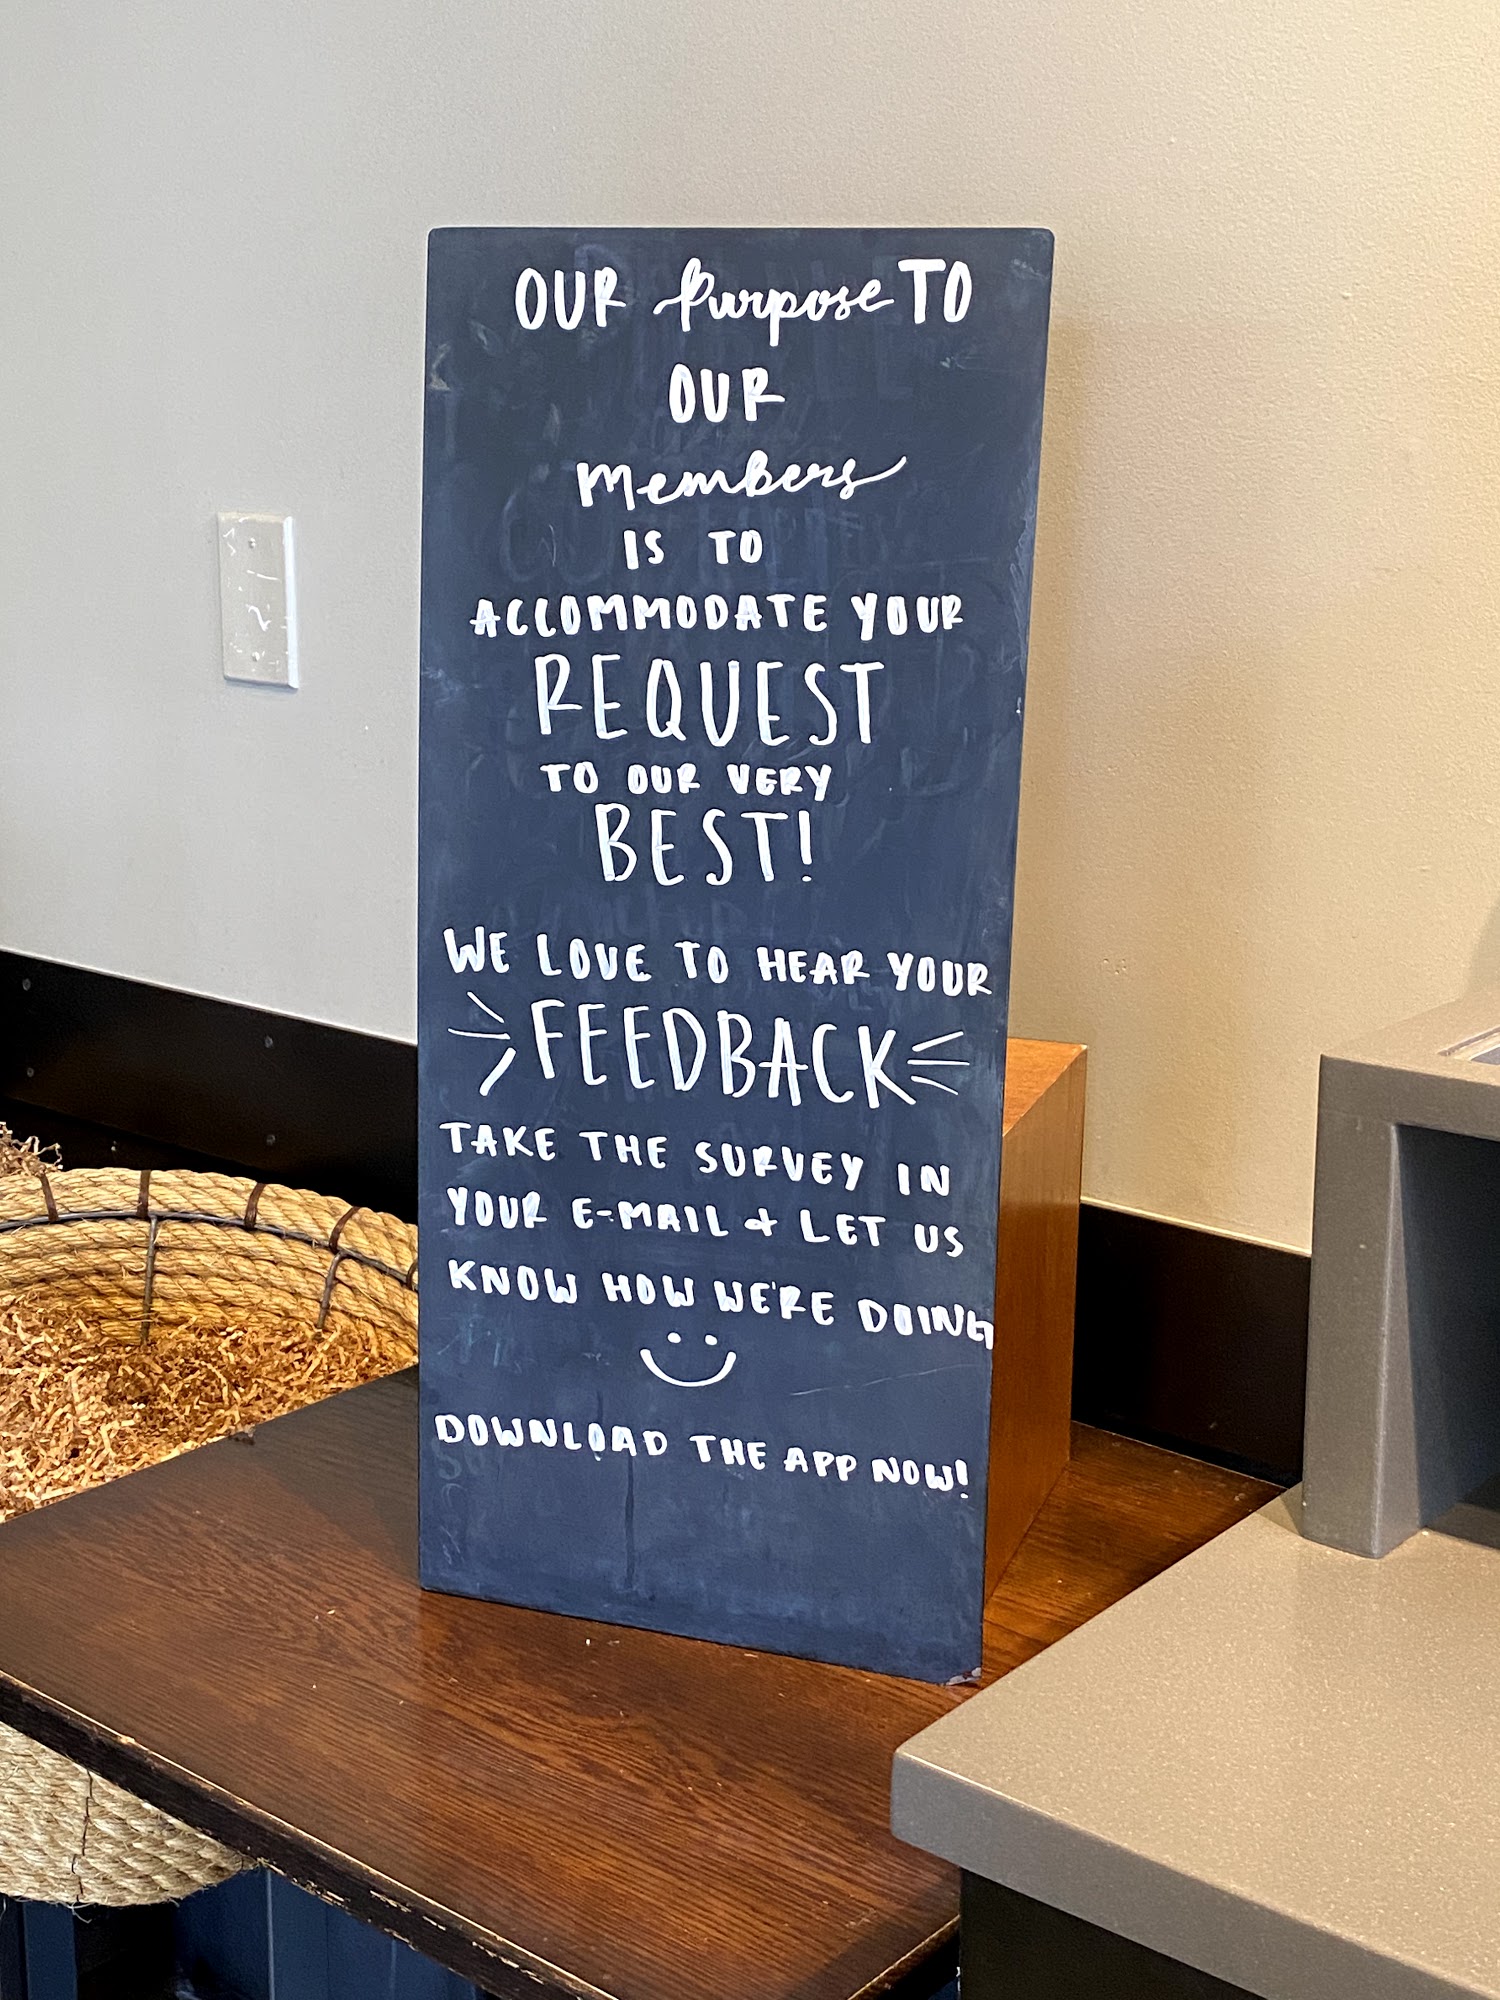 OUR Purpose TO
OUR
Members
IS TO
ACCOMMODATE YOUR
REQUEST
TO OUR VERY
BEST!
WE LOVE TO HEAR YOUR
FEEDBACK
TAKE THE SURVEY IN
YOUR E-MAIL + LET US
KNOW HOW WE'RE DOING
DOWNLOAD THE APP NOW!